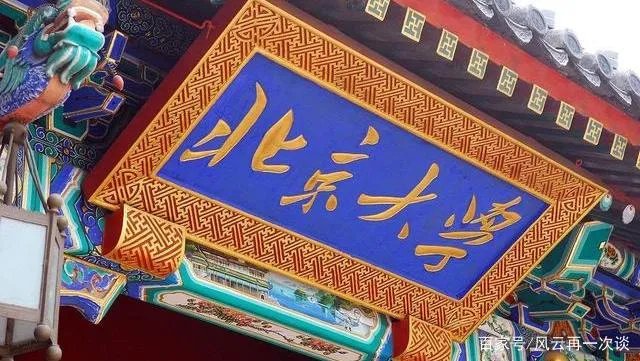 北京大学
百家号/风云再一次谈